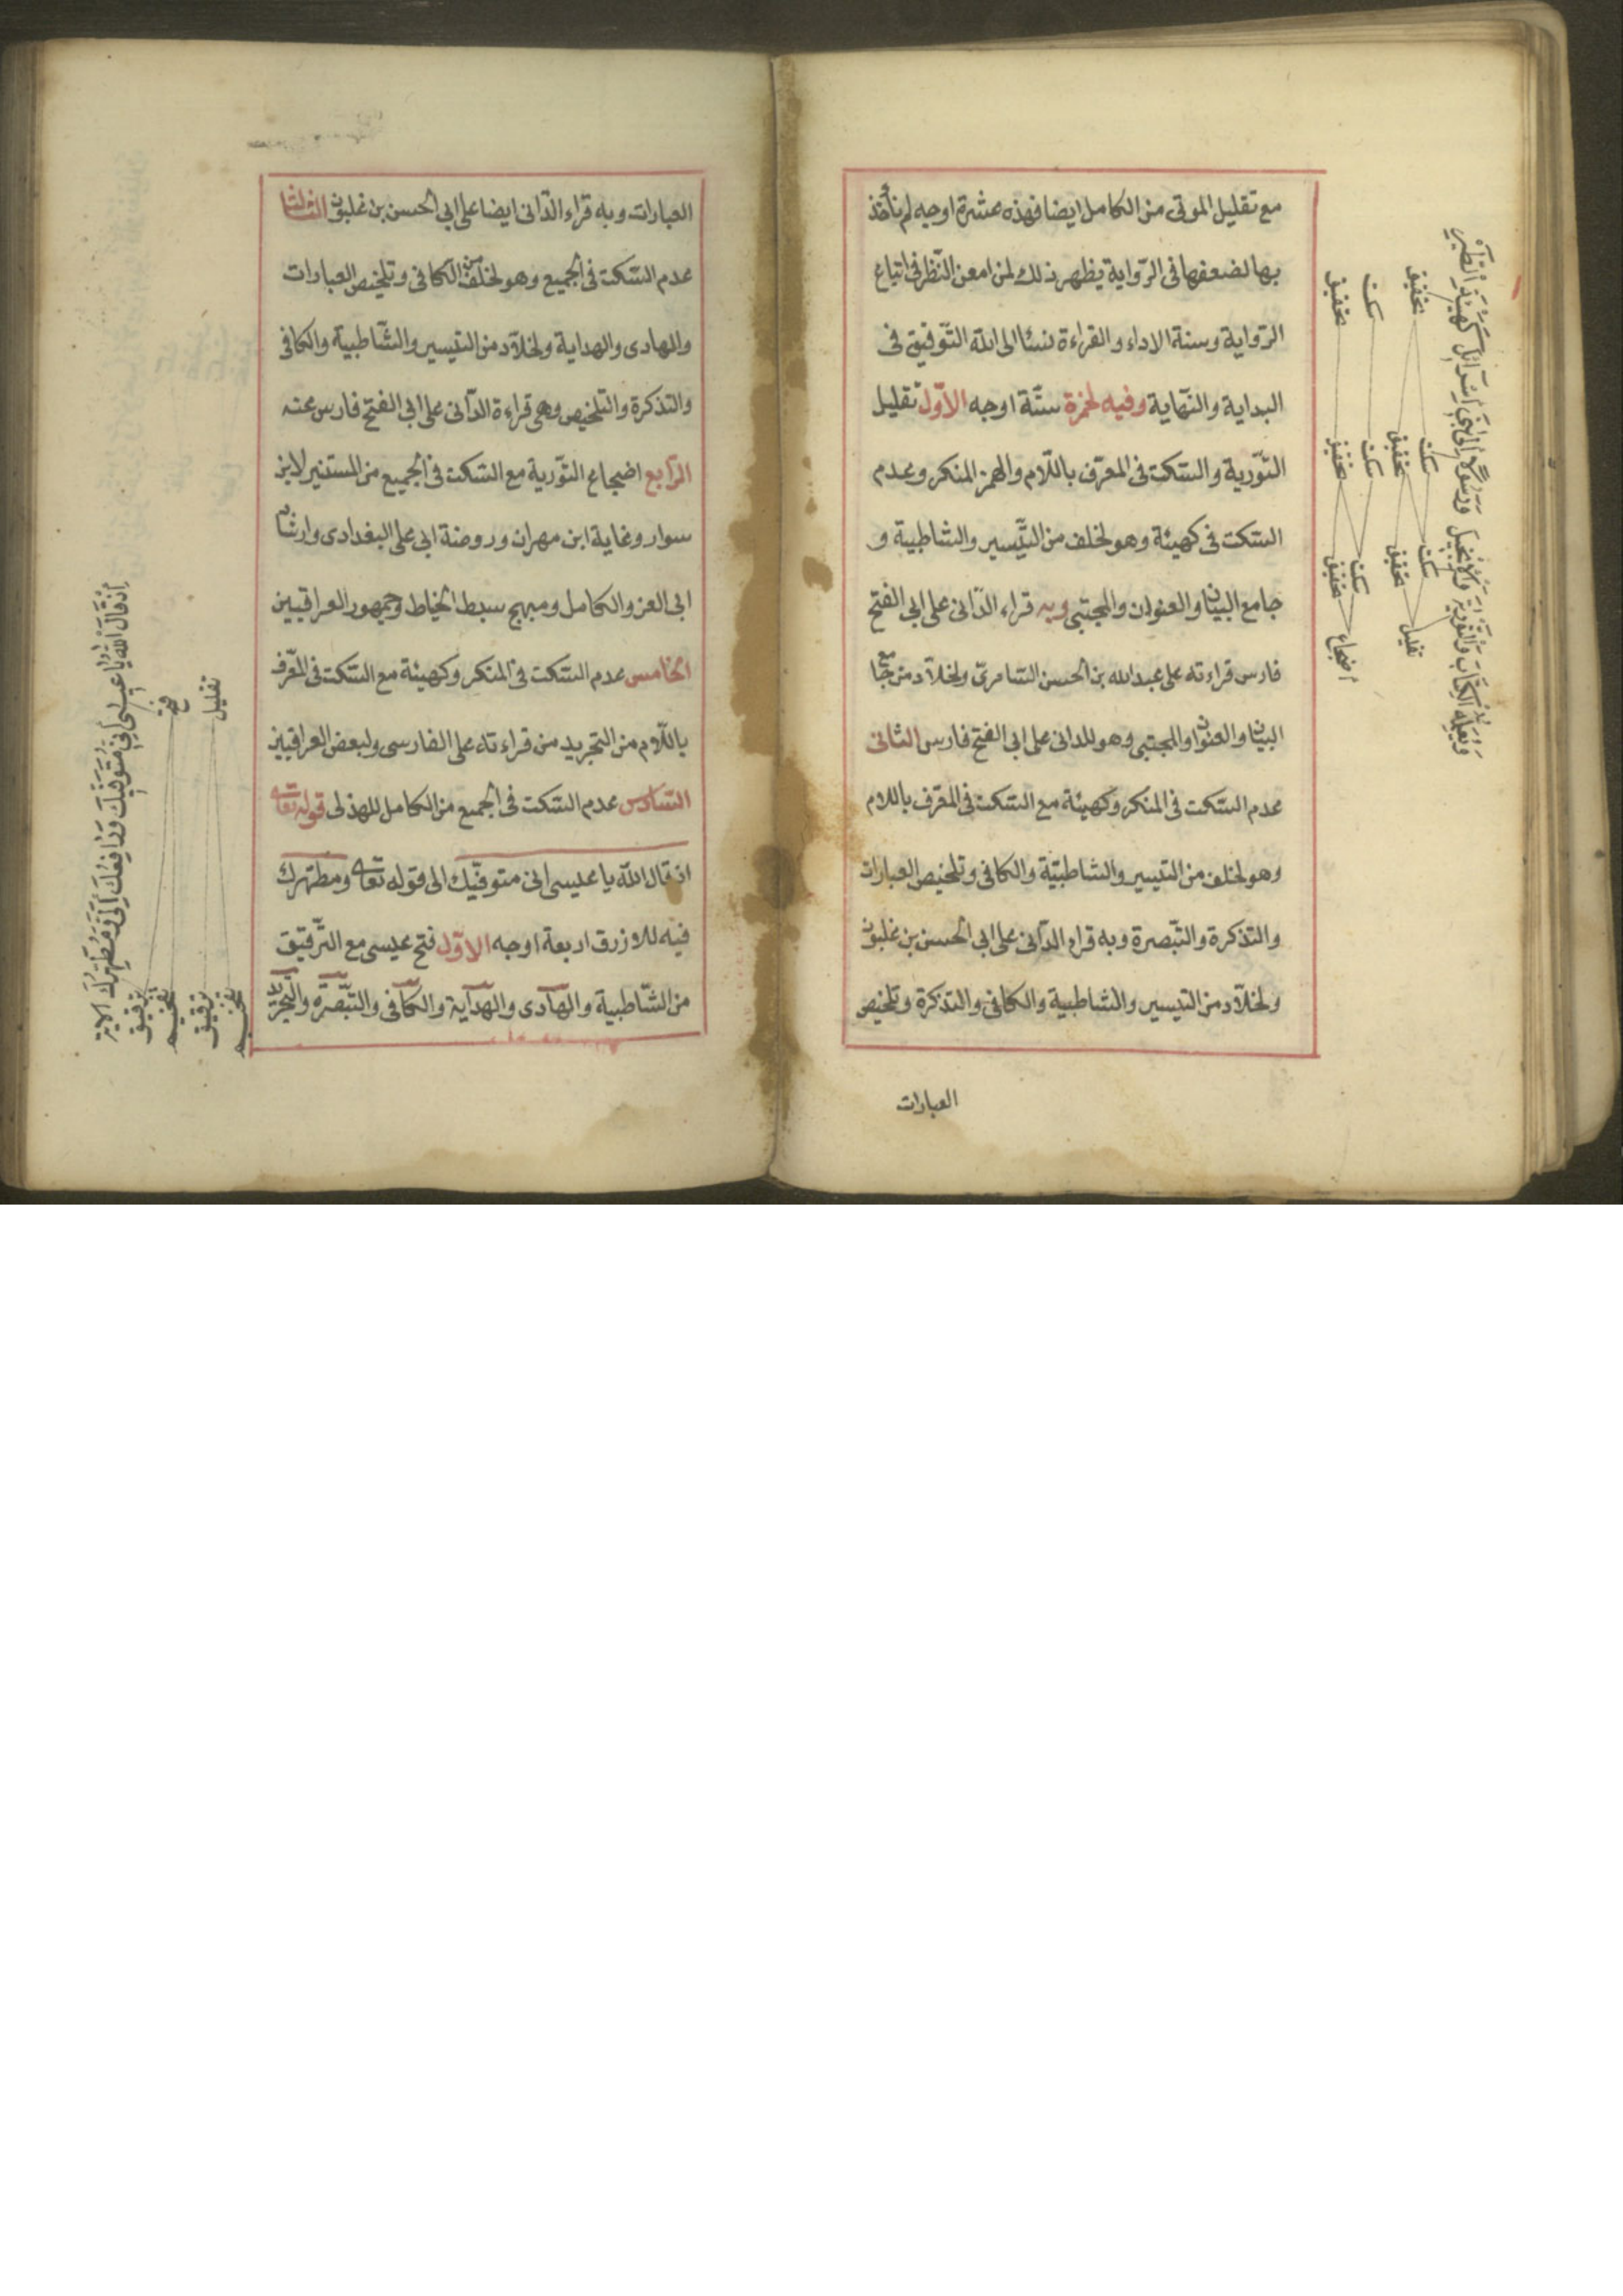 مع تقليل الموتى من الكامل ايضا فهذه عشرة اوجه لم نأخذ
بها لضعفها فى الرّواية يظهر ذلك لمن امعن النّظر فى اتباع
الرّواية وسنة الاداء والقراءة نسئل الى الله التّوفيق فى
البداية والنّهاية وفيه لحمزة ستّة اوجه الاوّل تقليل
التّورية والسّكت فى المعرّف باللّام والهمز المنكر وعدم
السّكت فى كهيئة وهو لخلف من التّيسير والشاطبية و
جامع البيان والعنوان والمجتبى وبه قراء الدّانى على ابى الفتح
فارس قراءته على عبدالله بن الحسن السّامرىّ ولخلّاد من جامع
البيان والعنوان والمجتبى وهو للدانى على ابى الفتح فارس الثانى
عدم السّكت فى المنكر وكهيئة مع السّكت فى المعرّف باللام
وهو لخلف من التيسير والشاطبيّة والكافى وتلخيص العبارات
والتذكرة والتّبصرة وبه قراء الدّانى على ابى الحسن بن غلبون
ولخلّاد من التيسير والشاطبية والكافى والتذكرة وتلخيص
العبارات
تحقيق سكت تحقيق
تحقيق سكت تحقيق سكت
تحقيق سكت تحقيق سكت
اضجاع تقليل
العبارات وبه قراء الدّانى ايضا على ابى الحسن بن غلبون الثالث
عدم السّكت فى الجميع وهو لخلف من الكافى وتلخيص العبارات
والهادى والهداية ولخلّاد من التيسير والشّاطبية والكافى
والتذكرة والتلخيص وهى قراءة الدّانى على ابى الفتح فارس عنه
الرّابع اضجاع التّورية مع السّكت فى الجميع من المستنير لابن
سوار وغاية ابن مهران وروضة ابى على البغدادى وارشاد
ابى العز والكامل ومبهج سبط الخياط وجمهور العراقيين
الخامس عدم السّكت فى المنكر وكهيئة مع السّكت فى المعّرف
باللّام من التجريد من قراءته على الفارسى ولبعض العراقيين
السّادس عدم السّكت فى الجميع من الكامل للهذلى قوله تعالى
اذ قال الله يا عيسى انى متوفّيك الى قوله تعالى ومطهّرك
فيه للازرق اربعة اوجه الاوّل فتح عيسى مع التّرقيق
من الشّاطبية والهادى والهداية والكافى والتّبصره والتّجريد
اِذْ قَالَ اللهُ يَا عِيسَى اِنِّى مُتَوَفِّيكَ وَرَافِعُكَ اِلَىَّ وَمُطَهِّرُكَ الاية
فتح تقليل
ترقيق تفخيم ترقيق تفخيم